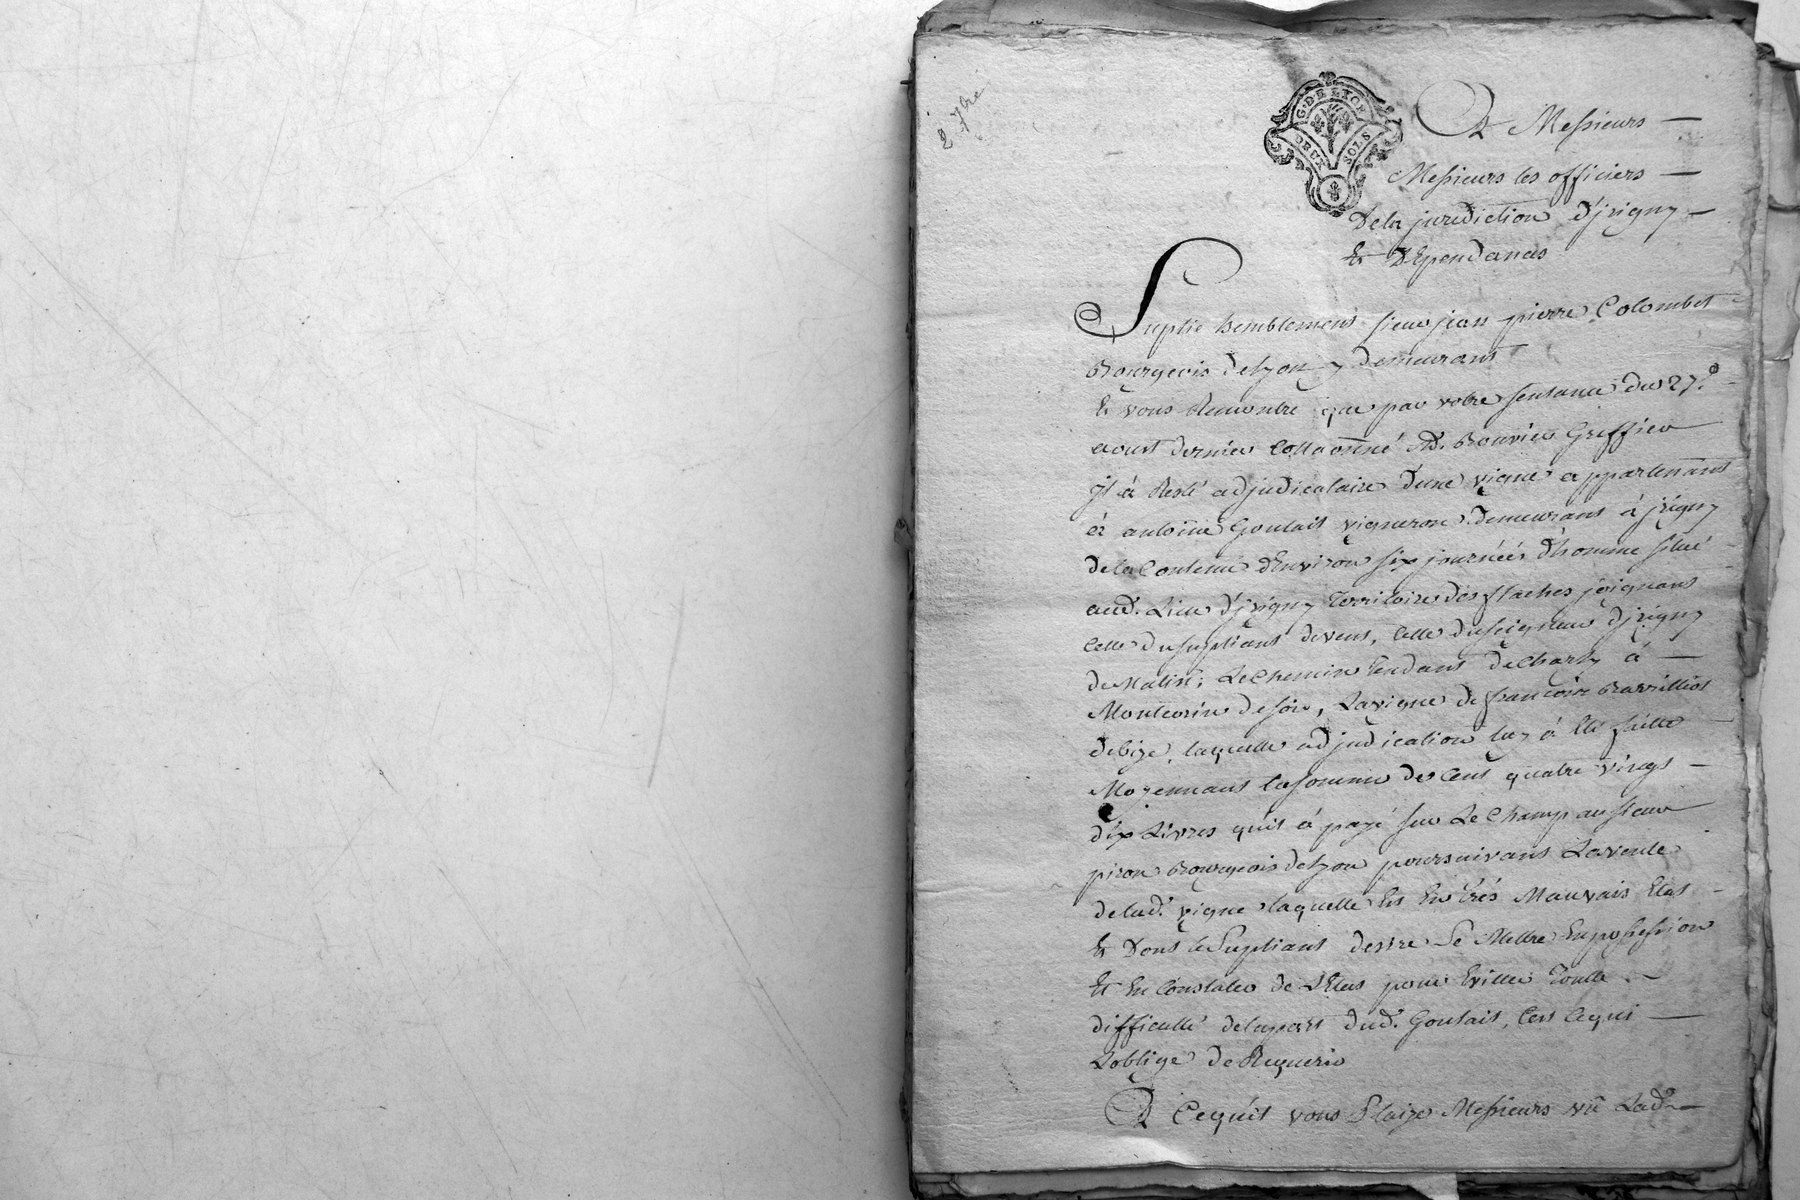 2 7bre
G. DE LYON
DEUX SOLS
A Messieurs —
Messieurs les officiers —
De la jurediction d'jrigny —
Et dEpendances
Suplie humblement sieur jean pierre Colombet
Bourgeois de lyon y demeurant
Et vous Remontre que par votre sentance du 27e
aoust dernier Collaonné M. Bouvier Greffier
Jl à Resté adjudicataire d'une vigne appartenant
à antoine Goutait vigneron demeurant à jrigny
de la Contenue d'Environ six journéés d'homme situé
aud. Lieu d'jrigny Territoire des flaches joignant
Celle du supliant de vent, Celle du seigneur djrigny
de Matin; Le Chemin tendant de Charly à —
Montcorin de soir, La vigne de françoise
de bize, laquelle adjudication luy à Eté faitte
Moyennant la somme de Cent quatre vingt —
dix Livres quil à payé sur Le Champ au sieur
piron Bourgeois de lyon poursuivant La vente
de lad. vigne laquelle Est En très Mauvais Etat
Et Dont le Supliant desire Se Mettre En possession
Et En Constater de L'Etat pour Eviter Toutte
difficulté de la part dud. Goutait, C'est Ce qui —
L'oblige de Requerir
A Ce quil vous Plaize Messieurs vû Lad. —